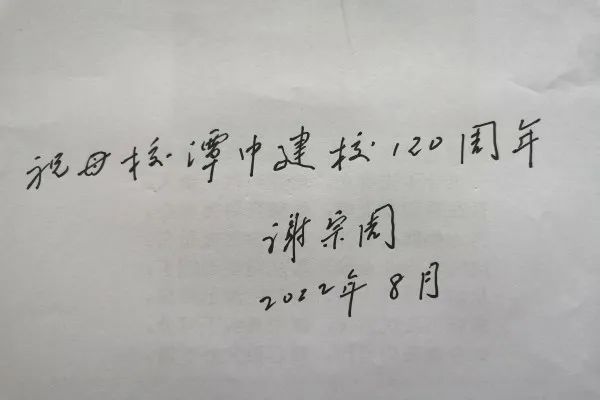 祝母校潭中建校120周年
谢宗周
2022年8月